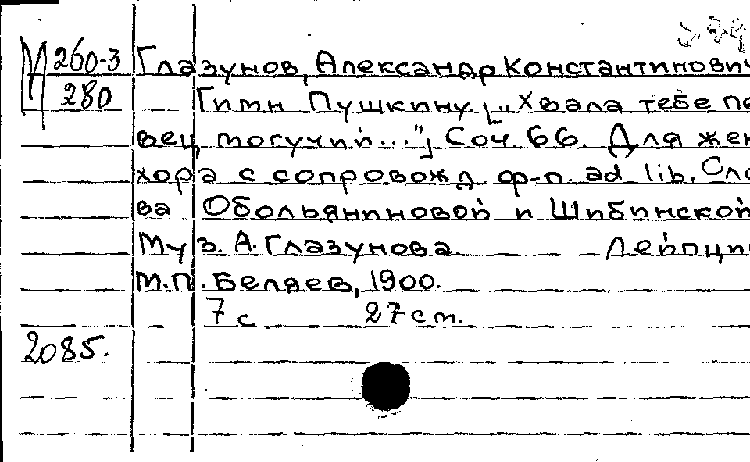 М 260-3 Глазунов, Александр Константинович
280 Гимн Пушкину ["Хвала тебе пе
вец могучий..."] Соч. 66. Для жен
хора с сопровожд. ф-п. ad lib. Сло
ва Обольяниновой и Шибинской
Муз. А. Глазунова Лейпциг
М.П. Беляев, 1900.
7 с 27 см.
2085.